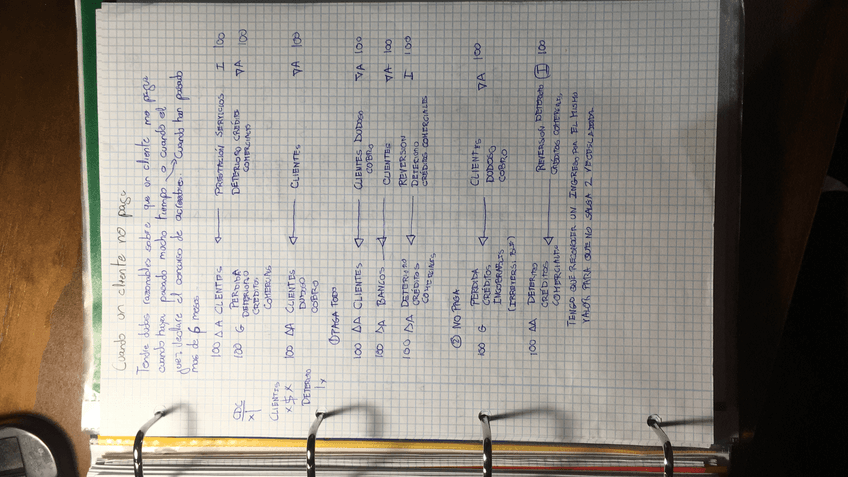 Cuando un cliente no paga
Tendré dudas razonables sobre que un cliente no pague
cuando haya pasado mucho tiempo o cuando el
juez declare el concurso de acreedores. Cuando han pasado
mas de 6 meses.
100 ΔA CLIENTES ← PRESTACIÓN SERVICIOS I 100
100 G PERDIDA DETERIORO CRÉDITOS COMERCIALES DETERIORO CRÉDITOS COMERCIALES ∇A 100
CDC
x
100 ΔA CLIENTES DUDOSO COBRO ← CLIENTES ∇A 100
CLIENTES
x $ x
DETERIORO
x
① PAGA TODO
100 ΔA CLIENTES ← CLIENTES DUDOSO COBRO ∇A 100
100 ΔA BANCOS ← CLIENTES ∇A 100
100 ΔA DETERIORO CRÉDITOS COMERCIALES ← REVERSION DETERIORO CRÉDITOS COMERCIALES I 100
② NO PAGA
100 G PERDIDA CRÉDITOS INCOBRABLES ← CLIENTES DUDOSO COBRO ∇A 100
100 ΔA DETERIORO CRÉDITOS COMERCIALES ← REVERSION DETERIORO CRÉDITOS COMERCIAL. I 100
TENGO QUE RECONOCER UN INGRESO POR EL MISMO
VALOR PARA QUE NO SALGA 2 VECES LA